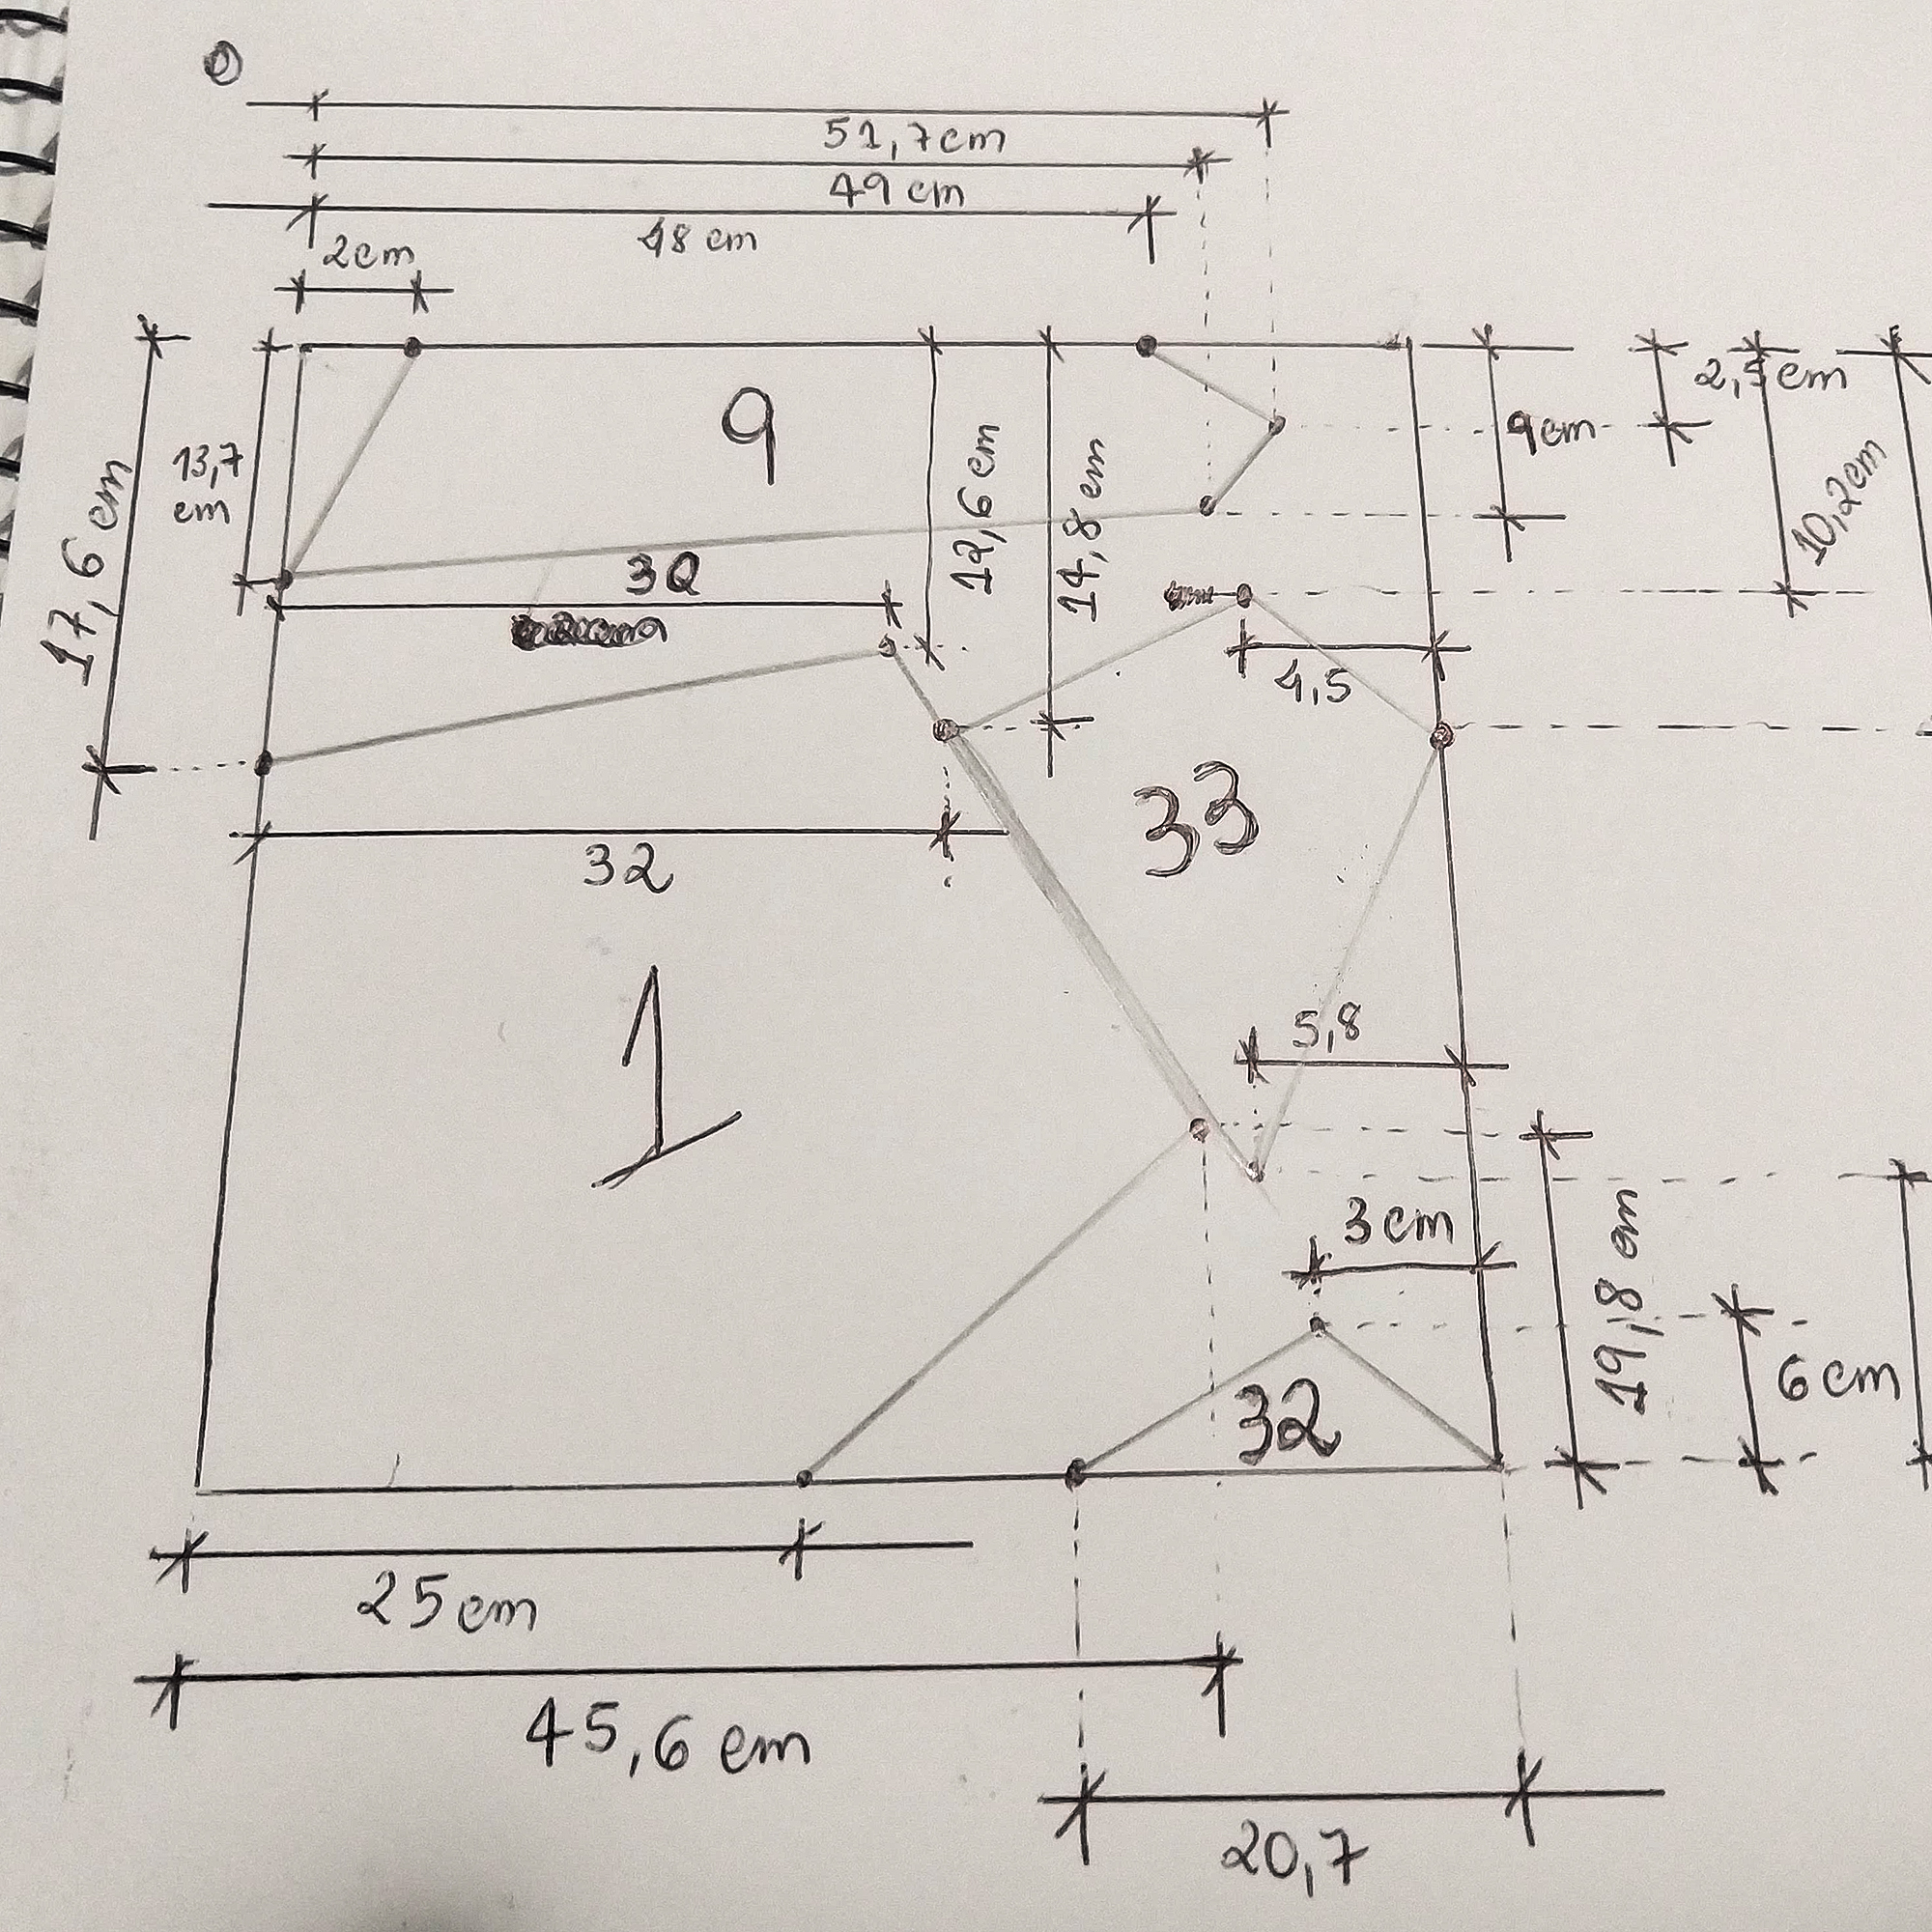 51,7cm
49 cm
48 cm
2cm
2,5cm
9
9cm
13,7
cm
12,6 cm
14,8 cm
10,2cm
17,6 cm
30
4,5
33
32
1
5,8
3cm
19,8 cm
6cm
32
25cm
45,6 cm
20,7